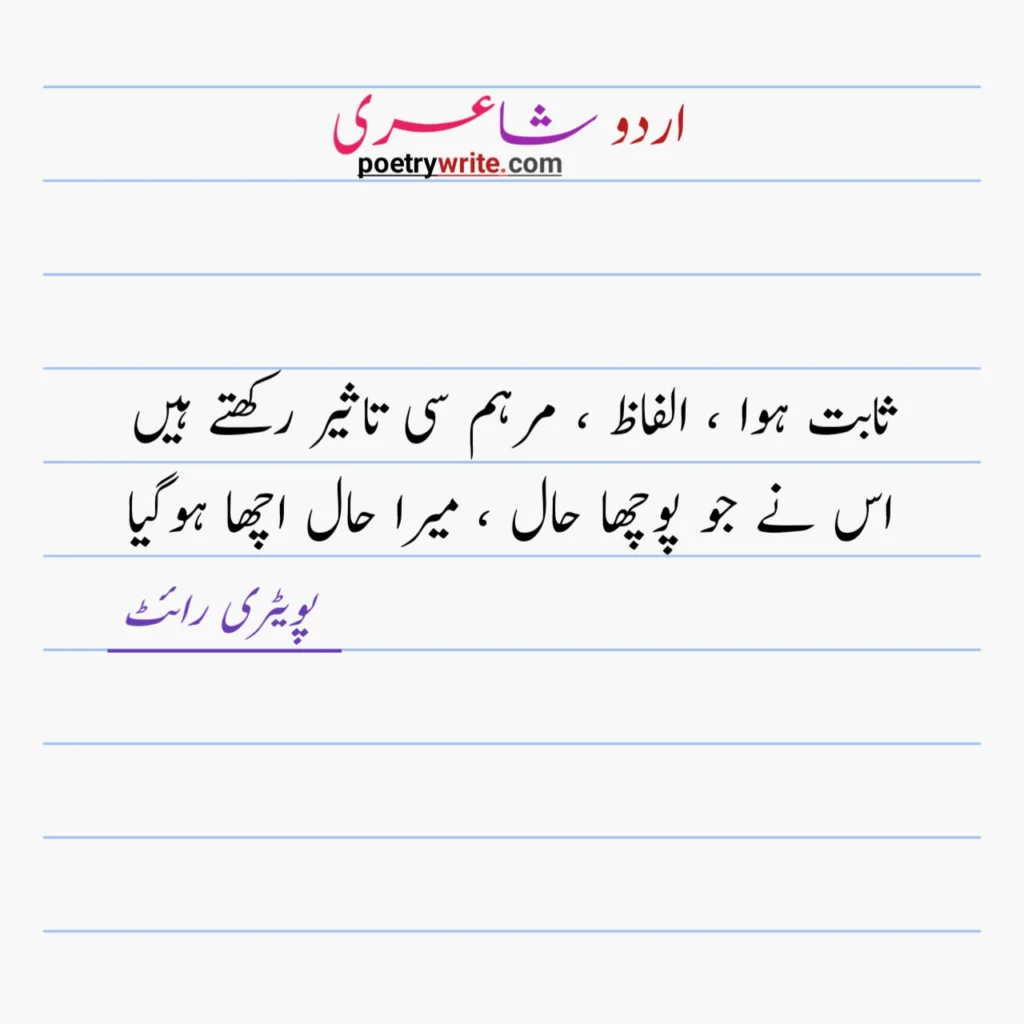 اردو شاعری
poetrywrite.com
ثابت ہوا ، الفاظ ، مرہم سی تاثیر رکھتے ہیں
اس نے جو پوچھا حال ، میرا حال اچھا ہوگیا
پویٹری رائٹ